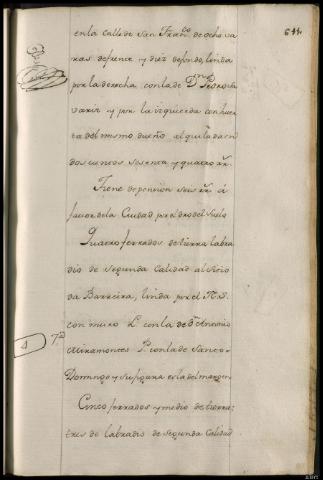 641.
en la Calle de San Fran.co de ocho va
ras de frente y diez de fondo, linda
por la derecha con la de D.n Pedro
varir y por la izquierda con huer
ta del mismo dueño, alquilada en
dos cientos sesenta y quatro rr.
Tiene de pension seis rr. á
favor de la Ciudad por el dro del Suelo
Quatro ferrados de tierra labra
dio de Segunda Calidad al Sitio
da Barreira, linda por el N.
con muro L. con la de D.n Antonio
Miramontes P. con la de Santo
Domingo y su figura es la del margen
Cinco ferrados y medio de tierra
de labradio de Segunda Calidad